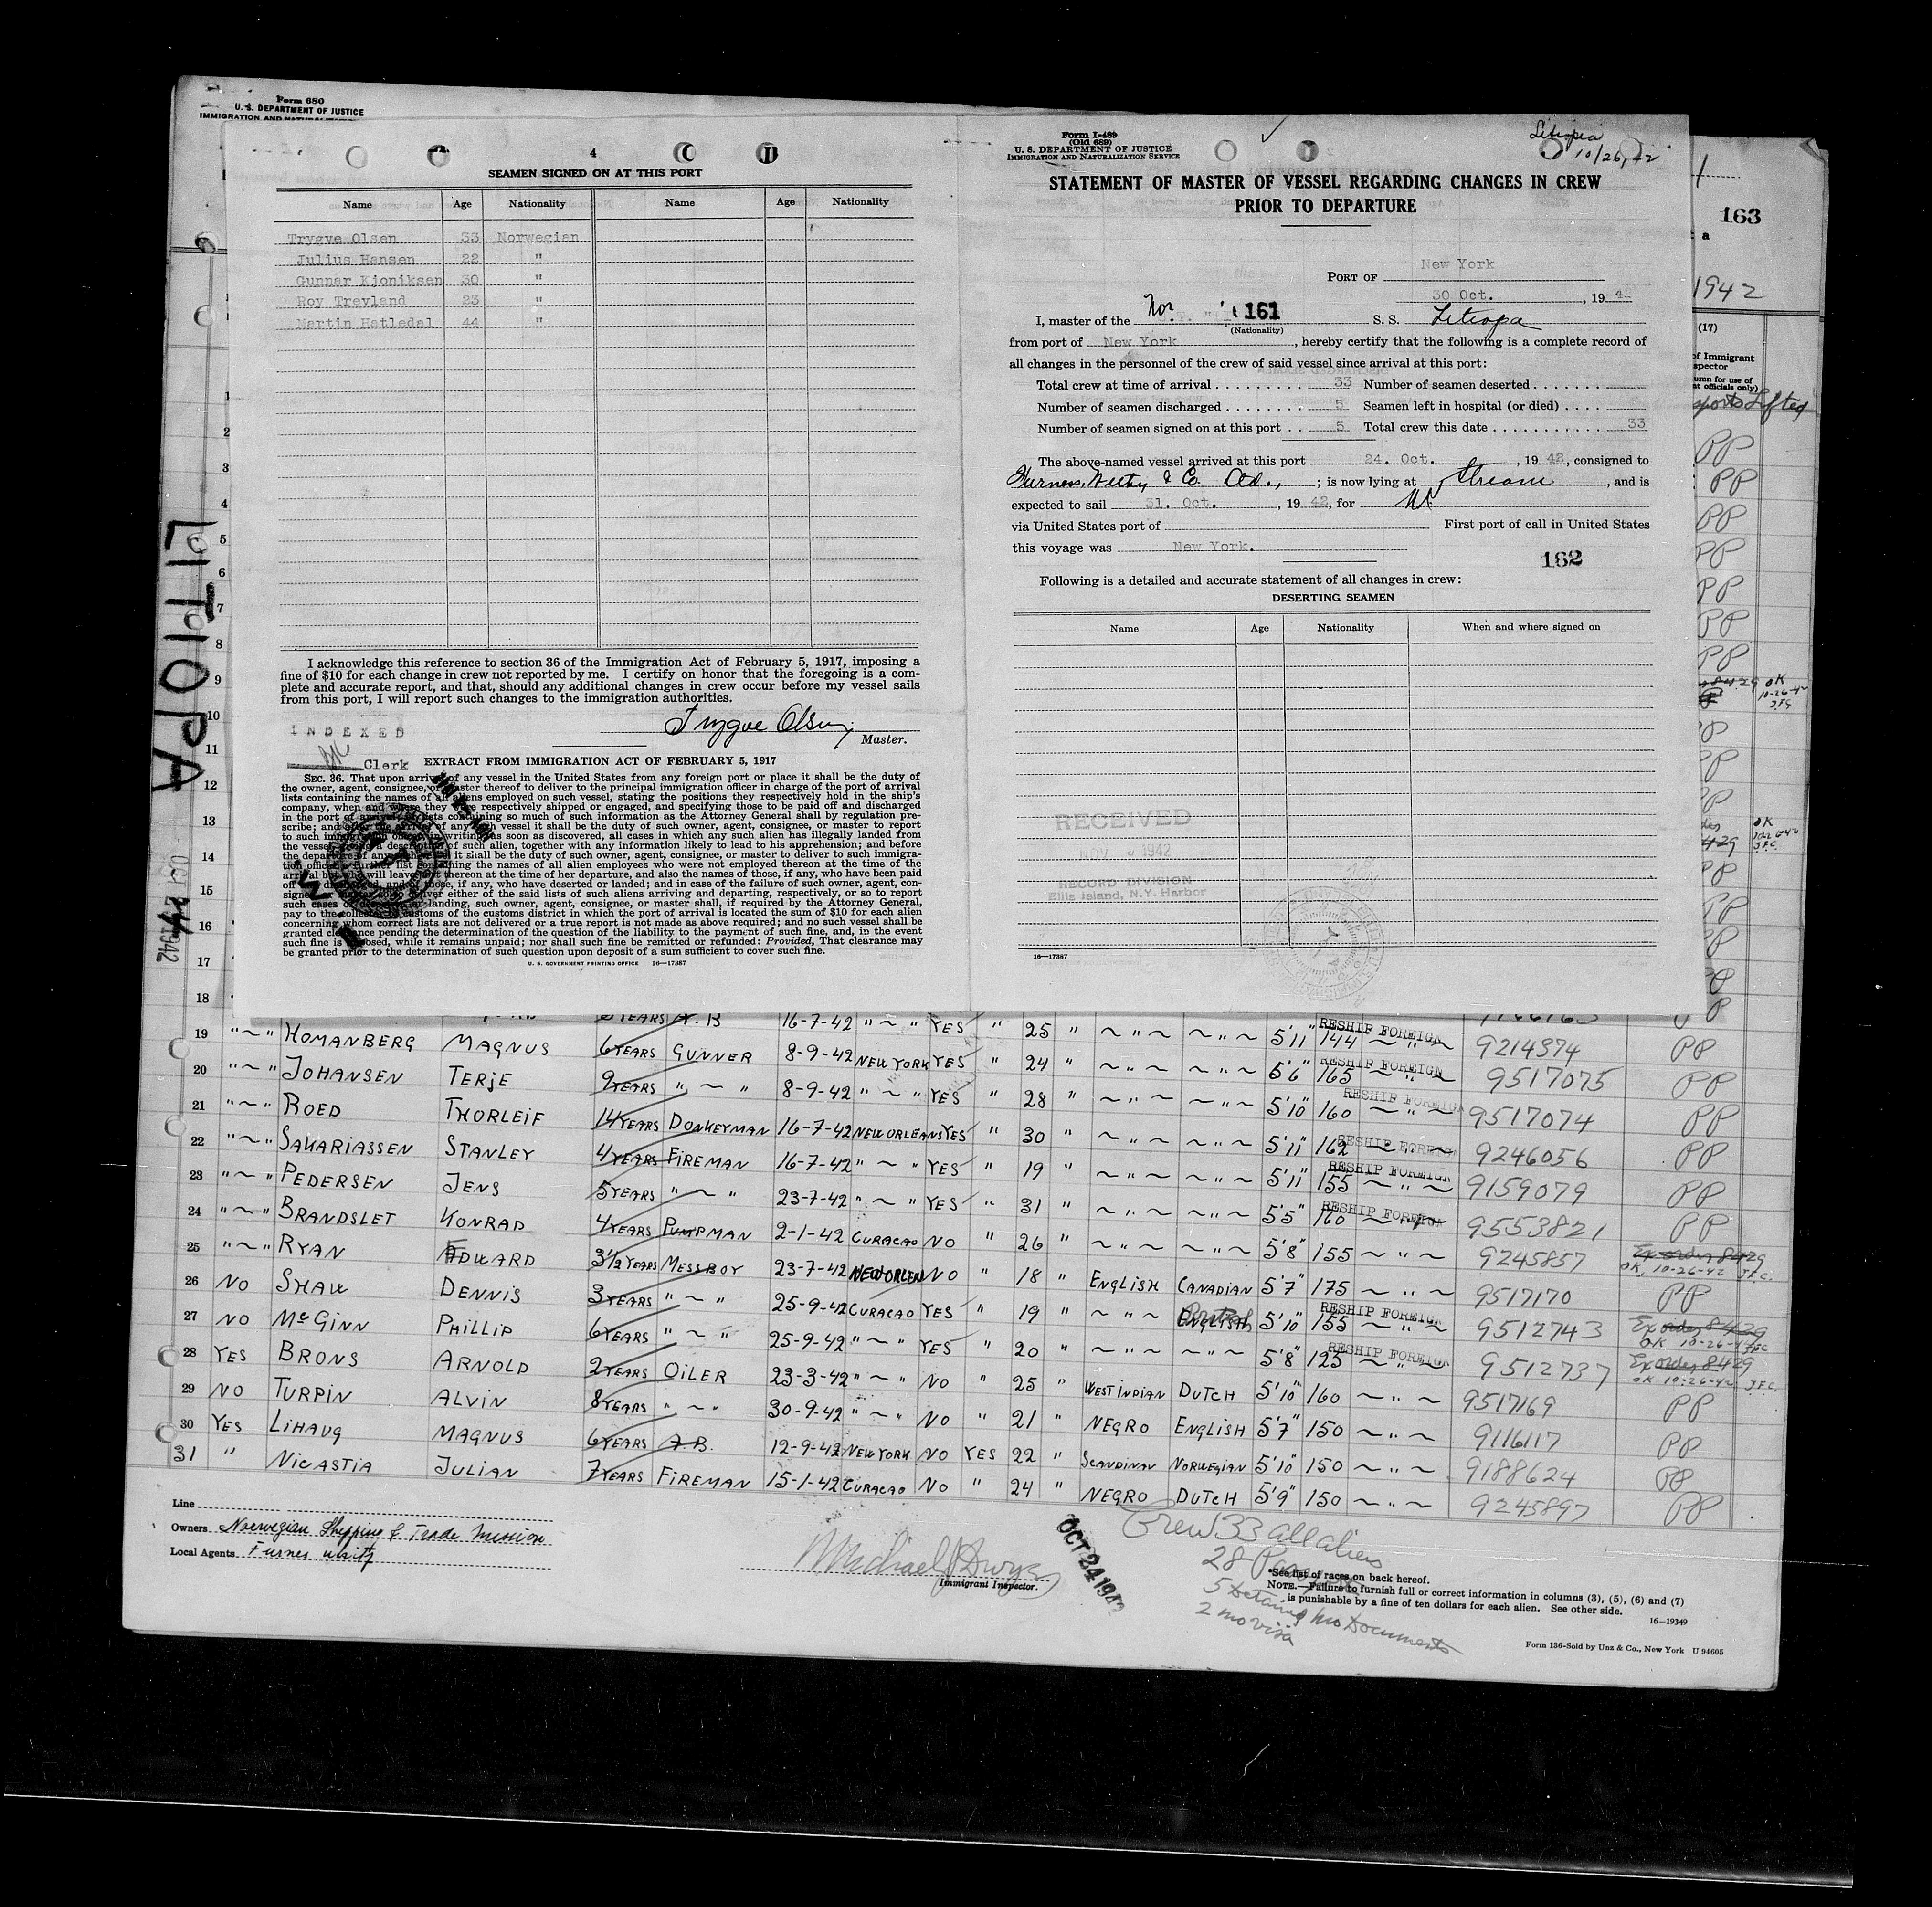 Form 680
U. S. DEPARTMENT OF JUSTICE
4
SEAMEN SIGNED ON AT THIS PORT
Name Age Nationality Name Age Nationality
Trygve Olsen 33 Norwegian
Julius Hansen 22 "
Gunnar Kjoniksen 30 "
Roy Trevland 23 "
Martin Hetledal 44 "
I acknowledge this reference to section 36 of the Immigration Act of February 5, 1917, imposing a
fine of $10 for each change in crew not reported by me. I certify on honor that the foregoing is a com-
plete and accurate report, and that, should any additional changes in crew occur before my vessel sails
from this port, I will report such changes to the immigration authorities.
INDEXED
Trygve Olsen
Master.
Clerk
EXTRACT FROM IMMIGRATION ACT OF FEBRUARY 5, 1917
SEC. 36. That upon arrival of any vessel in the United States from any foreign port or place it shall be the duty of
the owner, agent, consignee, or master thereof to deliver to the principal immigration officer in charge of the port of arrival
lists containing the names of all aliens employed on such vessel, stating the positions they respectively hold in the ship's
company, when and where they were respectively shipped or engaged, and specifying those to be paid off and discharged
in the port of arrival; or lists containing so much of such information as the Attorney General shall by regulation pre-
scribe; and after the arrival of any such vessel it shall be the duty of such owner, agent, consignee, or master to report
to such immigration officer, in writing, as soon as discovered, all cases in which any such alien has illegally landed from
the vessel, giving a description of such alien, together with any information likely to lead to his apprehension; and before
the departure of any such vessel it shall be the duty of such owner, agent, consignee, or master to deliver to such immigra-
tion officer a further list containing the names of all alien employees who were not employed thereon at the time of the
arrival but who will leave port thereon at the time of her departure, and also the names of those, if any, who have been paid
off and discharged, and of those, if any, who have deserted or landed; and in case of the failure of such owner, agent, con-
signee, or master to deliver either of the said lists of such aliens arriving and departing, respectively, or so to report
such cases of desertion or landing, such owner, agent, consignee, or master shall, if required by the Attorney General,
pay to the collector of customs of the customs district in which the port of arrival is located the sum of $10 for each alien
concerning whom correct lists are not delivered or a true report is not made as above required; and no such vessel shall be
granted clearance pending the determination of the question of the liability to the payment of such fine, and, in the event
such fine is imposed, while it remains unpaid; nor shall such fine be remitted or refunded: Provided, That clearance may
be granted prior to the determination of such question upon deposit of a sum sufficient to cover such fine.
U. S. GOVERNMENT PRINTING OFFICE 16—17387
Form I-489
(Old 689)
U. S. DEPARTMENT OF JUSTICE
IMMIGRATION AND NATURALIZATION SERVICE
Litiopa
10/26/42
STATEMENT OF MASTER OF VESSEL REGARDING CHANGES IN CREW
PRIOR TO DEPARTURE
PORT OF New York
30 Oct., 19 42
I, master of the Nor. 161 S. S. Litiopa
(Nationality)
from port of New York, hereby certify that the following is a complete record of
all changes in the personnel of the crew of said vessel since arrival at this port:
Total crew at time of arrival 33 Number of seamen deserted
Number of seamen discharged 5 Seamen left in hospital (or died)
Number of seamen signed on at this port 5 Total crew this date 33
The above-named vessel arrived at this port 24. Oct., 19 42, consigned to
Furness, Withy & Co. Ltd., ; is now lying at Stream, and is
expected to sail 31. Oct., 19 42, for
via United States port of First port of call in United States
this voyage was New York.
162
Following is a detailed and accurate statement of all changes in crew:
DESERTING SEAMEN
Name Age Nationality When and where signed on
RECEIVED
1942
RECORD DIVISION
Ellis Island, N.Y. Harbor
16—17387
163
1942
(17)
LITIOPA
OCT 24 1942
19 "~" HOMANBERG MAGNUS 6 YEARS GUNNER 8-9-42 NEW YORK YES " 24 " 5'6" 165 RESHIP FOREIGN 9214374 PP
20 "~" JOHANSEN TERJE 9 YEARS " ~ " 8-9-42 " ~ " YES " 28 " 5'10" 160 RESHIP FOREIGN 9517075 PP
21 "~" ROED THORLEIF 14 YEARS DONKEYMAN 16-7-42 NEW ORLEANS YES " 30 " 5'11" 162 RESHIP FOREIGN 9517074 PP
22 "~" SAKARIASSEN STANLEY 4 YEARS FIREMAN 16-7-42 " ~ " YES " 19 " 5'11" 155 RESHIP FOREIGN 9246056 PP
23 "~" PEDERSEN JENS 5 YEARS " ~ " 23-7-42 " ~ " YES " 31 " 5'5" 160 RESHIP FOREIGN 9159079 PP
24 "~" BRANDSLET KONRAD 4 YEARS PUMPMAN 2-1-42 CURACAO NO " 26 " 5'8" 155 9553821 PP
25 "~" RYAN EDWARD 3 1/2 YEARS MESSBOY 23-7-42 NEW ORLEN NO " 18 " ENGLISH CANADIAN 5'7" 175 9245857 Ex order 8429 OK, 10-26-42 J.F.C.
26 NO SHAW DENNIS 3 YEARS " ~ " 25-9-42 CURACAO YES " 19 " ENGLISH British 5'10" 155 RESHIP FOREIGN 9517170 PP
27 NO McGINN PHILLIP 6 YEARS " ~ " 25-9-42 " ~ " YES " 20 " 5'8" 125 RESHIP FOREIGN 9512743 Ex order 8429 OK 10-26-42 JFC
28 YES BRONS ARNOLD 2 YEARS OILER 23-3-42 " ~ " NO " 25 " WEST INDIAN DUTCH 5'10" 160 9512737 Ex order 8429 OK 10-26-42 J.F.C.
29 NO TURPIN ALVIN 8 YEARS " ~ " 30-9-42 " ~ " NO " 21 " NEGRO ENGLISH 5'7" 150 9517169 PP
30 YES LIHAUG MAGNUS 6 YEARS A.B. 12-9-42 NEW YORK NO YES 22 " SCANDINAV NORWEGIAN 5'10" 150 9116117 PP
31 " NICASTIA JULIAN 7 YEARS FIREMAN 15-1-42 CURACAO NO " 24 " NEGRO DUTCH 5'9" 150 9188624 PP
9245897 PP
Line
Owners Norwegian Shipping & Trade Mission
Local Agents Furnes Withy
Michael J Dwyer
Immigrant Inspector.
OCT 24 1942
Crew 33 all aliens
28
5 detained No Documents
2 no visa
*See list of races on back hereof.
NOTE.—Failure to furnish full or correct information in columns (3), (5), (6) and (7)
is punishable by a fine of ten dollars for each alien. See other side.
16—19349
Form 136-Sold by Unz & Co., New York U 94605